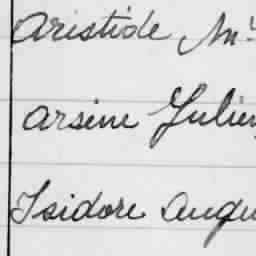 Aristide M
Arsène Julien
Isidore Augu